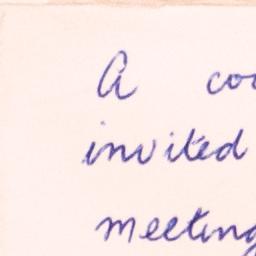 A
invited
meeting